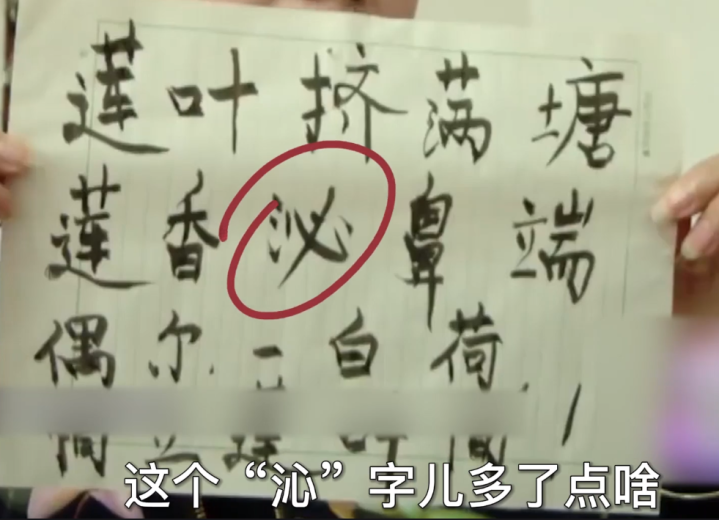 莲叶挤满塘
莲香泌鼻端
偶尔白荷
这个“沁”字儿多了点啥